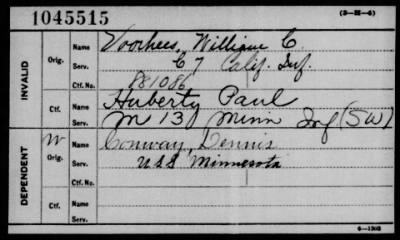 1045515
(3-M-4)
INVALID
Orig.
Name Voorhees, William C.
Serv. C 7 Calif. Inf.
Ctf. No. 881086
Ctf.
Name Huberty Paul
Serv. M 13 Minn Inf (SW)
DEPENDENT
W
Orig.
Name Conway, Dennis
Serv. USS Minnesota
Ctf. No.
Ctf.
Name
Serv.